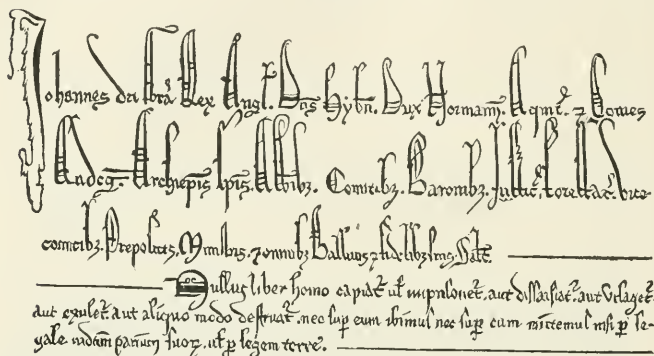 Johannes dei gr̃a Rex Angl̃. Dñs Hybñ. Dux Normann̄. Aqint̃. ⁊ Comes
Andeg̃. Archiepĩs Epĩs. Abbibȝ. Comitibȝ. Baronibȝ. Justic̃. Forestar̃. vice
comitibȝ. Prepositis. Ministris. ⁊ omnibȝ Ballivis ⁊ fidelibȝ suis. Salt̃.
Nullus liber homo capiat̃. ul̃ imp̃sonet̃. aut dissaisiat̃. aut utlaget̃.
aut exulet̃. aut aliquo modo destruat̃. nec sup̃ eum ibimus nec sup̃ eum mittemus nisi p̃ le-
gale judiciũ pariũ suoȝ. ul̃ p̃ legem terre.